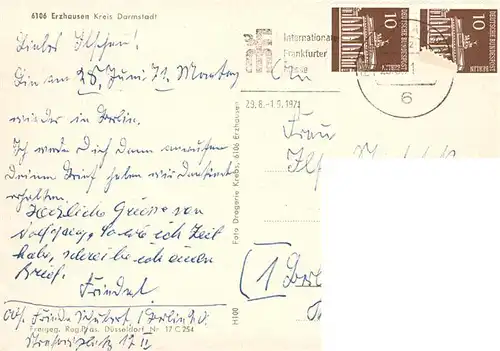 6106 Erzhausen Kreis Darmstadt
Liebes Ilschen!
Bin am 28. Juni 71, Montag
wieder in Berlin.
Ich werde Dich dann anrufen
Deinen Brief haben wir
erhalten.
Herzliche Grüsse von
Wolfgang. Sowie ich Zeit
habe, schreibe ich einen
Brief.
Friedel
Abs. Frieda Schubert, 1 Berlin
Freigeg. Reg. Präs. Düsseldorf Nr. 17 C 254
Foto Drogerie Krebs, 6106 Erzhausen
H100
Internationale
Frankfurter
Messe
29.8.-1.9.1971
6
10
DEUTSCHE BUNDESPOST
BERLIN
10
DEUTSCHE BUNDESPOST
BERLIN
An
Frau
1 Berl